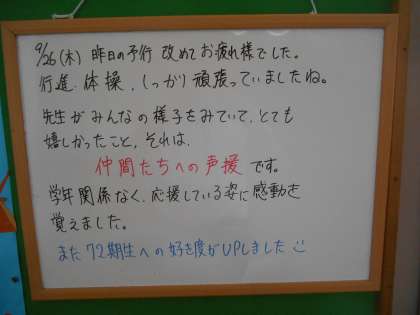 9/26(木) 昨日の予行 改めてお疲れ様でした。
行進、体操、しっかり頑張っていましたね。
先生がみんなの様子をみていて、とても
嬉しかったこと、それは、
仲間たちへの声援 です。
学年関係なく、応援している姿に感動を
覚えました。
また72期生への好き度がUPしました